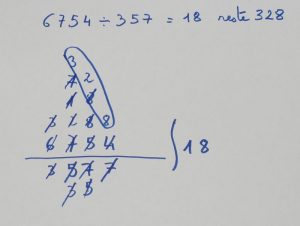 6754 ÷ 357 = 18 reste 328
3
7 2
1 8
3 2 8 8
6 7 5 4
18
3 5 7 7
3 5